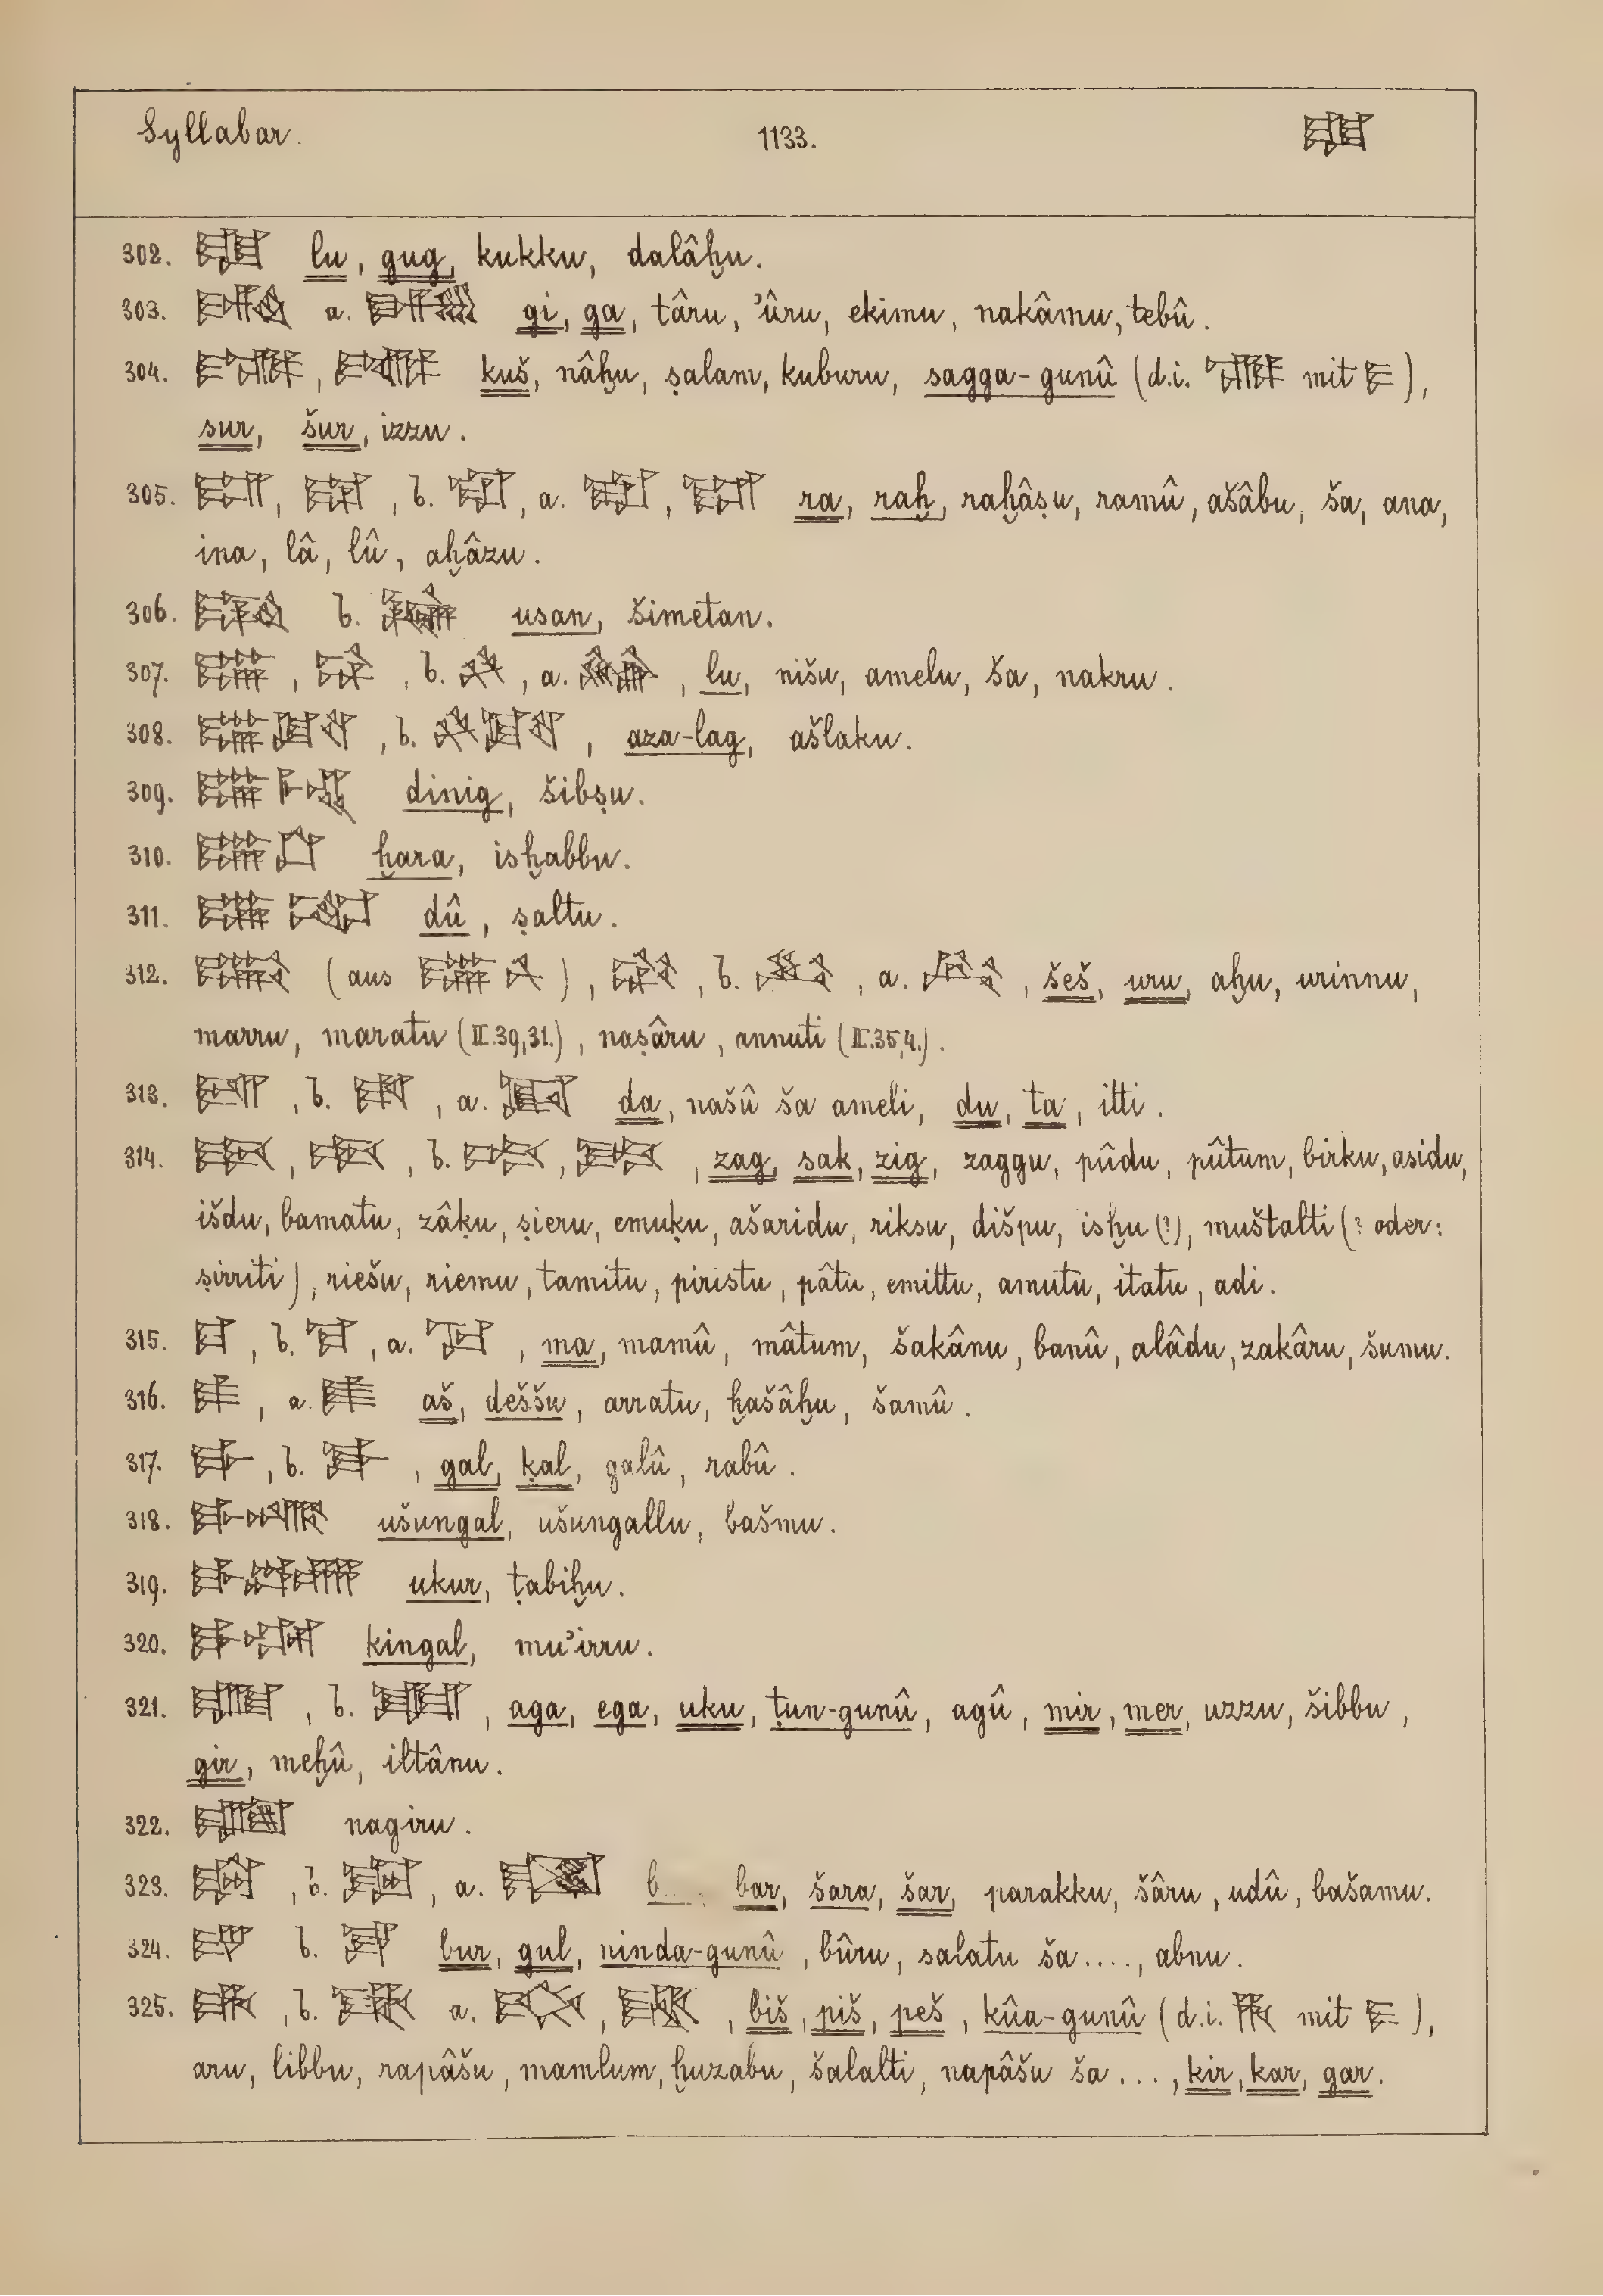 Syllabar. 1133.
302. lu, gug, kukku, dalâḫu.
303. a. gi, ga, târu, ʾûru, ekimu, nakâmu, tebû.
304. , kuš, nâḫu, ṣalam, kuburu, sagga-gunû (d.i. mit ),
sur, šur, izzu.
305. , , b. , a. , ra, raḫ, raḫâṣu, ramû, ašâbu, ša, ana,
ina, lâ, lû, aḫâzu.
306. b. usan, šimetan.
307. , , b. , a. , lu, nišu, amelu, ša, nakru.
308. , b. , aza-lag, ašlaku.
309. dinig, šibṣu.
310. ḫara, isḫabbu.
311. dû, ṣaltu.
312. (aus ), , b. , a. , šeš, uru, aḫu, urinnu,
marru, maratu (II.39,31.), naṣâru, annuti (II.35,4.).
313. , b. , a. da, našû ša ameli, du, ta, itti.
314. , , b. , , zag, sak, zig, zaggu, pûdu, pûtum, birku, asidu,
išdu, bamatu, zâḳu, ṣieru, emuḳu, ašaridu, riksu, dišpu, isḫu (?), muštalti (? oder:
ṣirriti), riešu, riemu, tamitu, piristu, pâtu, emittu, amutu, itatu, adi.
315. , b. , a. , ma, mamû, mâtum, šakânu, banû, alâdu, zakâru, šumu.
316. , a. aš, deššu, arratu, ḫašâḫu, šamû.
317. , b. , gal, ḳal, galû, rabû.
318. ušungal, ušungallu, bašmu.
319. ukur, ṭabiḫu.
320. kingal, muʾirru.
321. , b. , aga, ega, uku, ṭun-gunû, agû, mir, mer, uzzu, šibbu,
gir, meḫû, iltânu.
322. nagiru.
323. , b. , a. b.... bar, šara, šar, parakku, šâru, udû, bašamu.
324. b. bur, gul, ninda-gunû, bûru, salatu ša ...., abnu.
325. , b. a. , , biš, piš, peš, kûa-gunû (d.i. mit ),
aru, libbu, rapâšu, mamlum, ḫuzabu, šalalti, napâšu ša ..., kir, kar, gar.